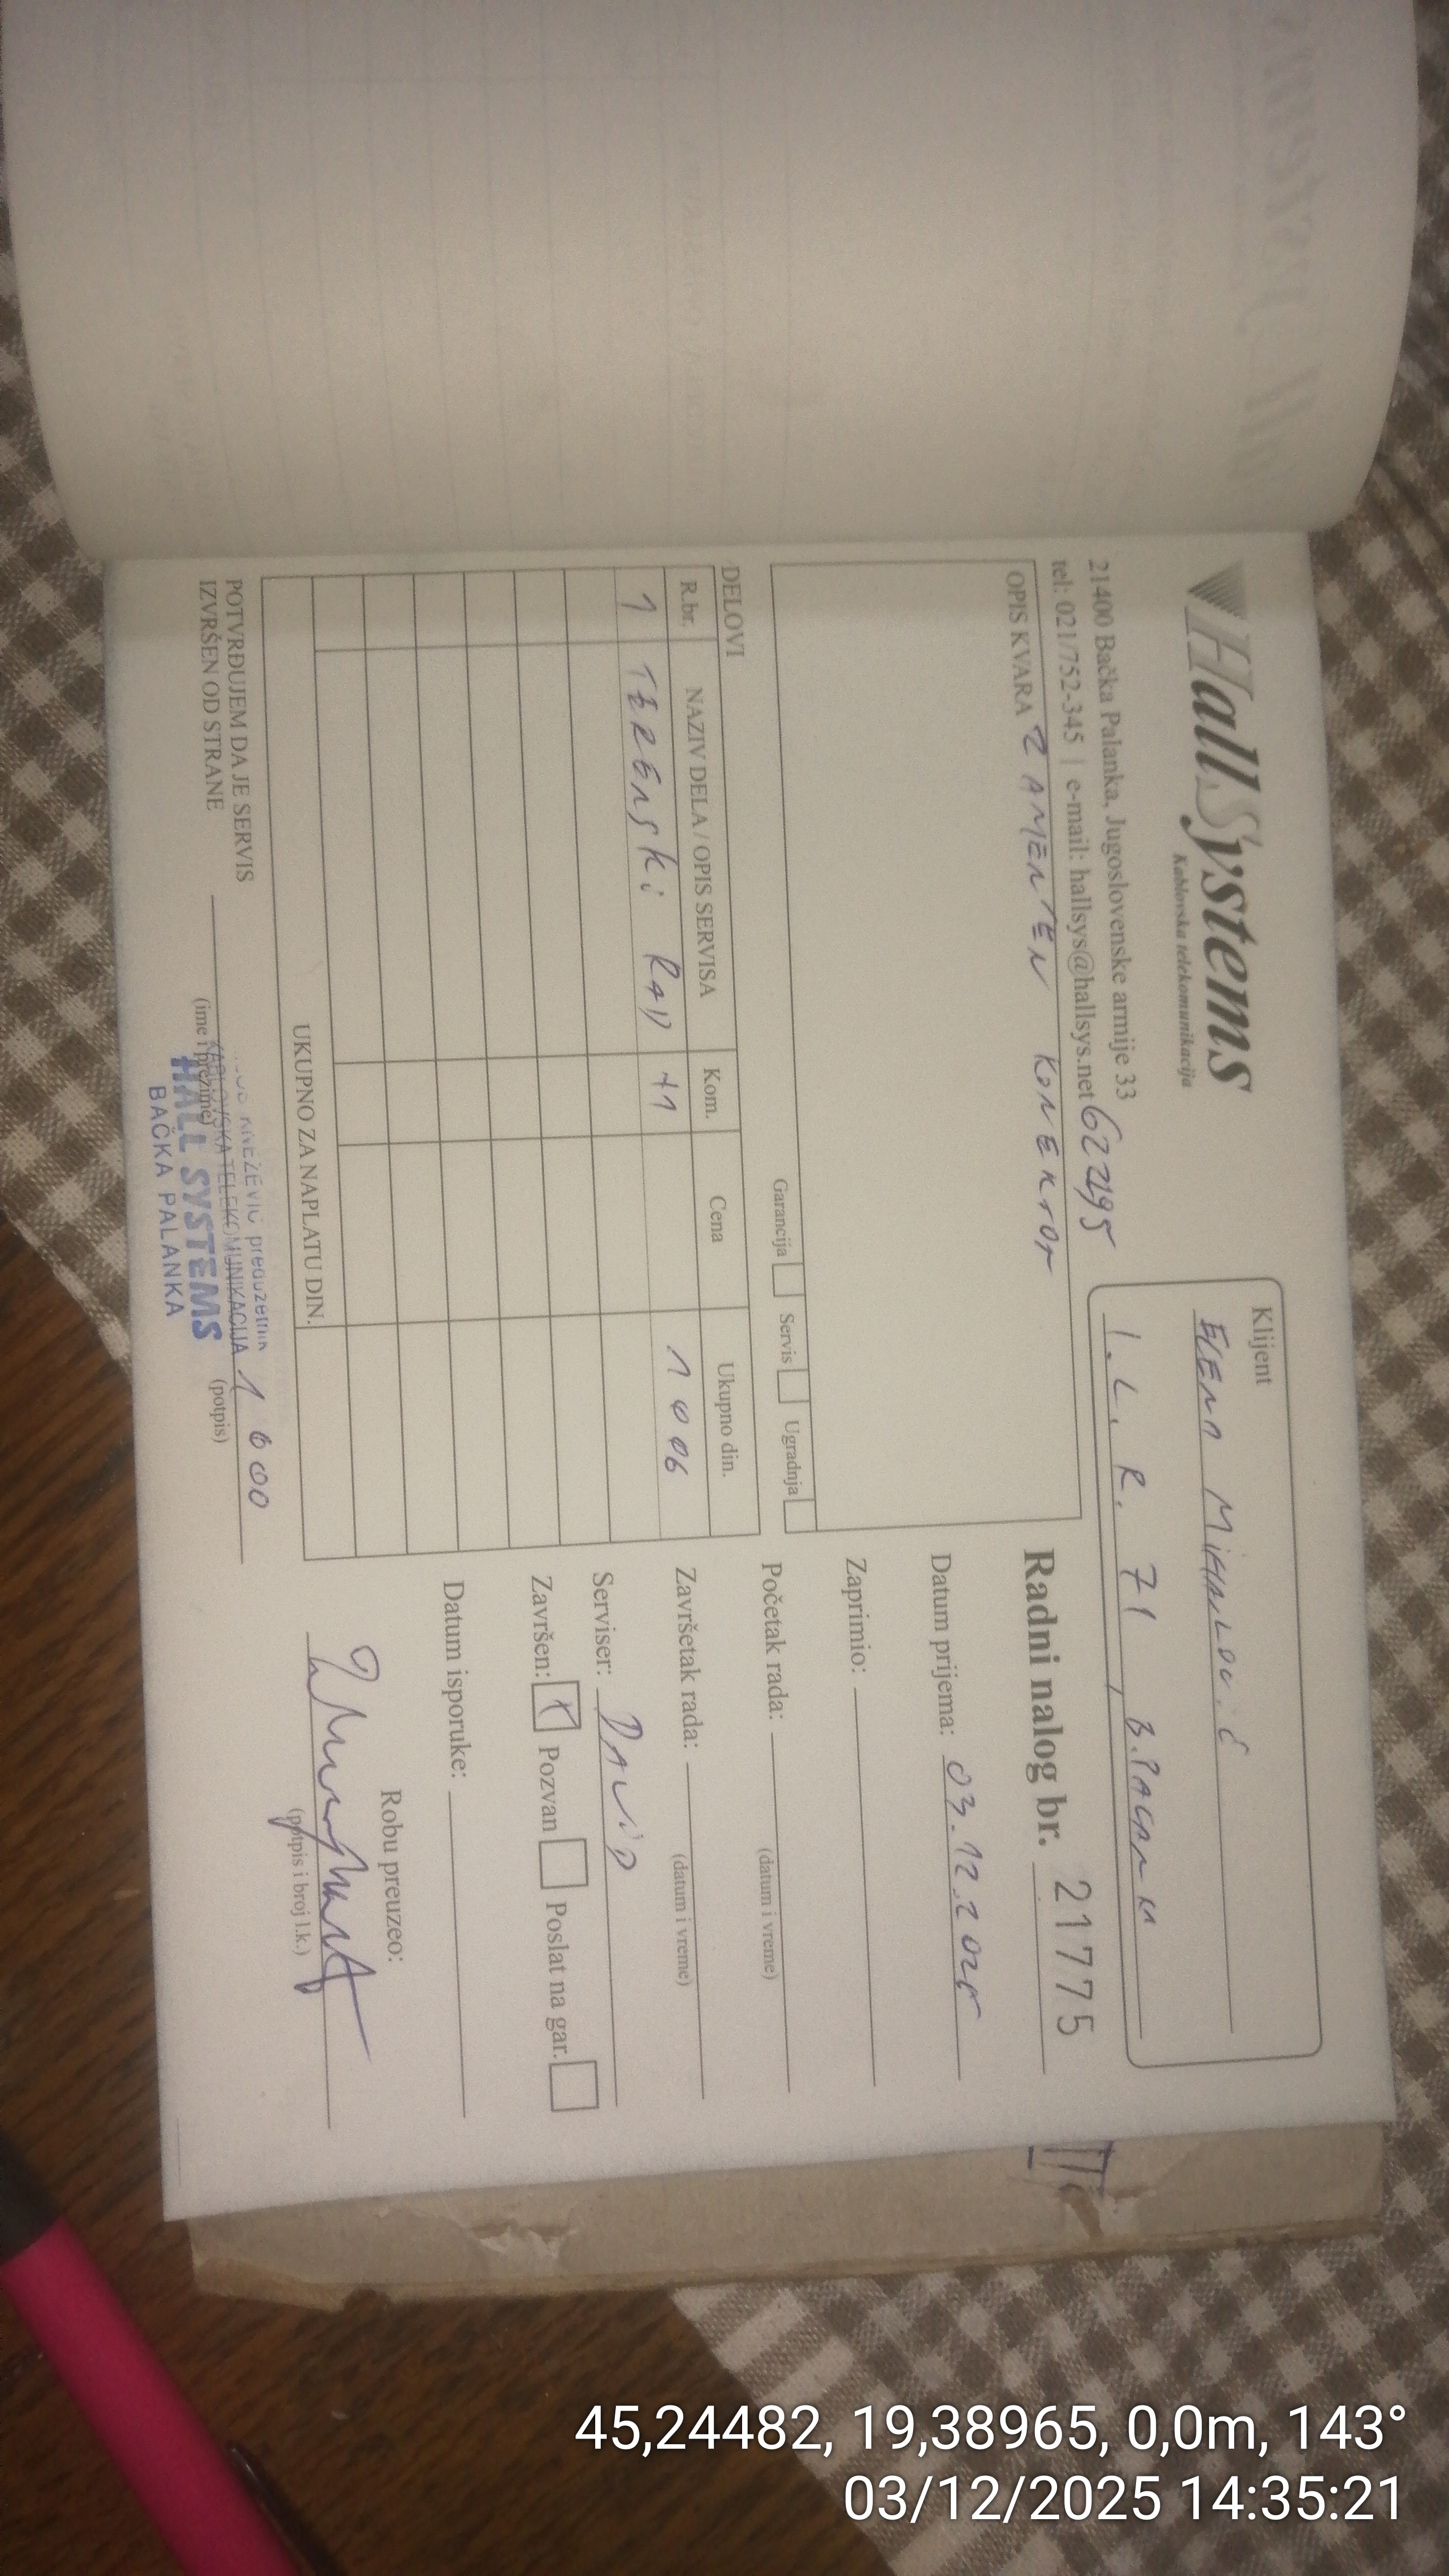 HallSystems
Kablovska telekomunikacija
21400 Bačka Palanka, Jugoslovenske armije 33
tel: 021/752-345 | e-mail: hallsys@hallsys.net
Klijent
I. L. R. 71, B.PALANKA
OPIS KVARA ZAMENJEN KONEKTOR
Garancija Servis Ugradnja
Radni nalog br. 21775
Datum prijema: 03.12.2025
Zaprimio:
Početak rada:
(datum i vreme)
Završetak rada:
(datum i vreme)
Serviser: DAVID
Završen: X Pozvan Poslat na gar.
Datum isporuke:
Robu preuzeo:
(potpis i broj l.k.)
DELOVI
R.br. NAZIV DELA / OPIS SERVISA Kom. Cena Ukupno din.
1 TERENSKI RAD 1000
UKUPNO ZA NAPLATU DIN.
POTVRĐUJEM DA JE SERVIS
IZVRŠEN OD STRANE
(ime i prezime)
(potpis)
KNEŽEVIĆ preduzetnik
KABLOVSKA TELEKOMUNIKACIJA
HALL SYSTEMS
BAČKA PALANKA
45,24482, 19,38965, 0,0m, 143°
03/12/2025 14:35:21